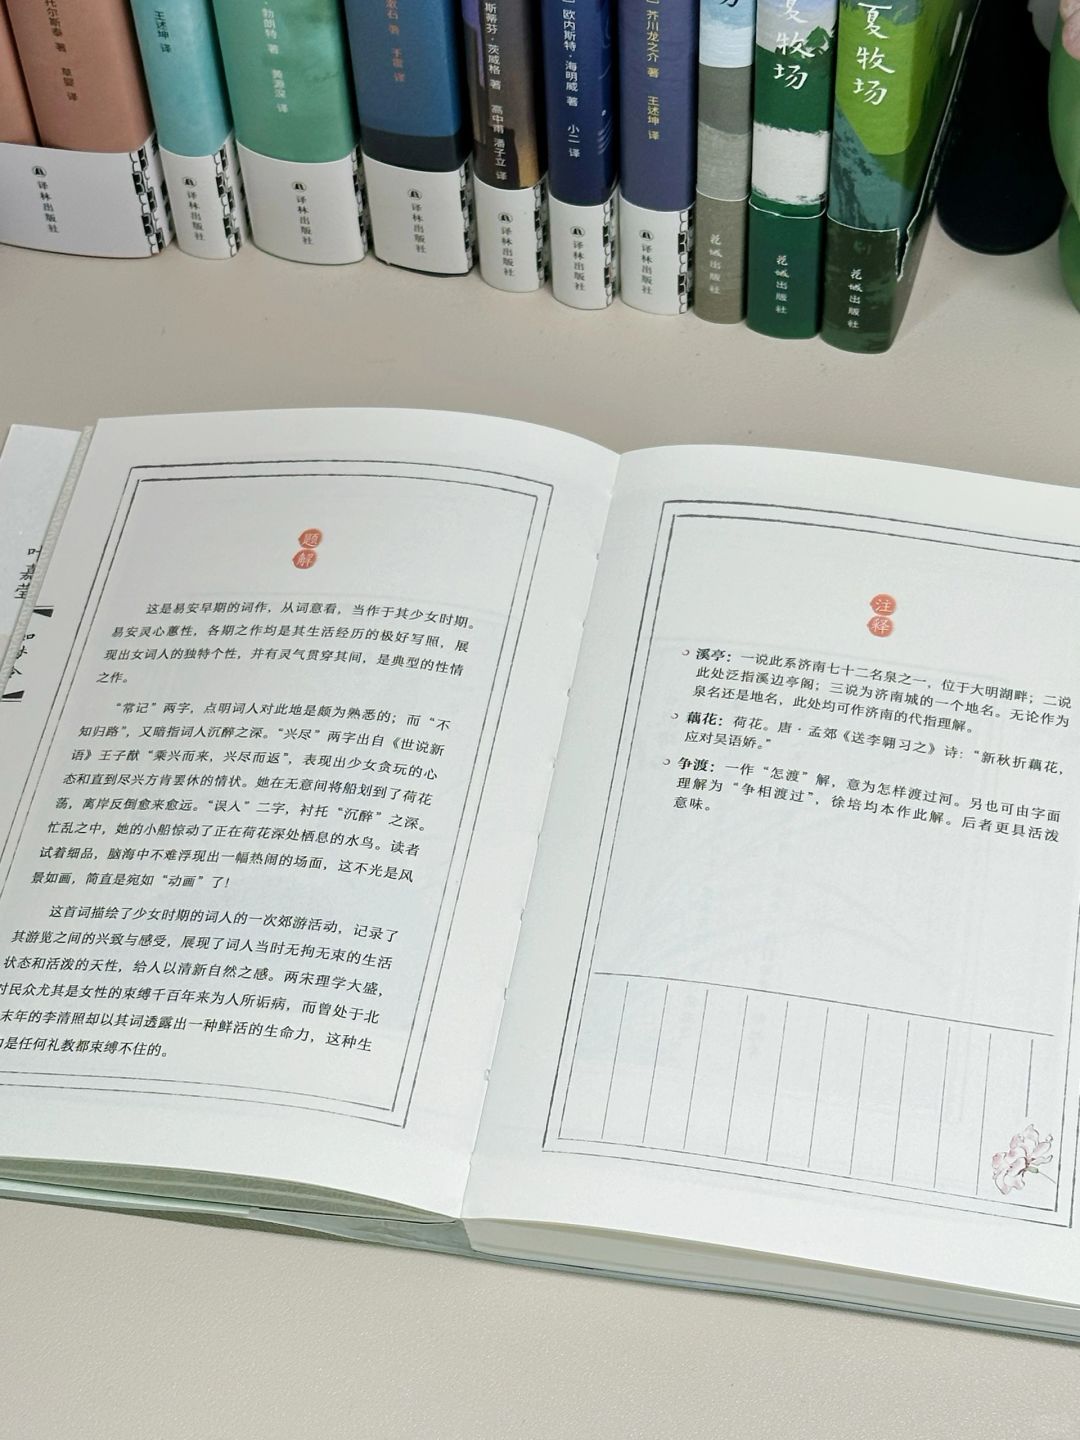 托尔斯泰 著 草婴 译
译林出版社
王述坤 译
译林出版社
勃朗特 著 黄源深 译
译林出版社
漱石 著 于雷 译
译林出版社
斯蒂芬·茨威格 著 高中甫 潘子立 译
译林出版社
欧内斯特·海明威 著 小二 译
译林出版社
芥川龙之介 著 王述坤 译
译林出版社
花城出版社
夏牧场
花城出版社
夏牧场
花城出版社
叶嘉莹
题解
这是易安早期的词作，从词意看，当作于其少女时期。
易安灵心蕙性，各期之作均是其生活经历的极好写照，展
现出女词人的独特个性，并有灵气贯穿其间，是典型的性情
之作。
“常记”两字，点明词人对此地是颇为熟悉的；而“不
知归路”，又暗指词人沉醉之深。“兴尽”两字出自《世说新
语》王子猷“乘兴而来，兴尽而返”，表现出少女贪玩的心
态和直到尽兴方肯罢休的情状。她在无意间将船划到了荷花
荡，离岸反倒愈来愈远。“误人”二字，衬托“沉醉”之深。
忙乱之中，她的小船惊动了正在荷花深处栖息的水鸟。读者
试着细品，脑海中不难浮现出一幅热闹的场面，这不光是风
景如画，简直是宛如“动画”了！
这首词描绘了少女时期的词人的一次郊游活动，记录了
其游览之间的兴致与感受，展现了词人当时无拘无束的生活
状态和活泼的天性，给人以清新自然之感。两宋理学大盛，
对民众尤其是女性的束缚千百年来为人所诟病，而曾处于北
末年的李清照却以其词透露出一种鲜活的生命力，这种生
是任何礼教都束缚不住的。
注释
溪亭：一说此系济南七十二名泉之一，位于大明湖畔；二说
此处泛指溪边亭阁；三说为济南城的一个地名。无论作为
泉名还是地名，此处均可作济南的代指理解。
藕花：荷花。唐·孟郊《送李翱习之》诗：“新秋折藕花，
应对吴语娇。”
争渡：一作“怎渡”解，意为怎样渡过河。另也可由字面
理解为“争相渡过”，徐培均本作此解。后者更具活泼
意味。